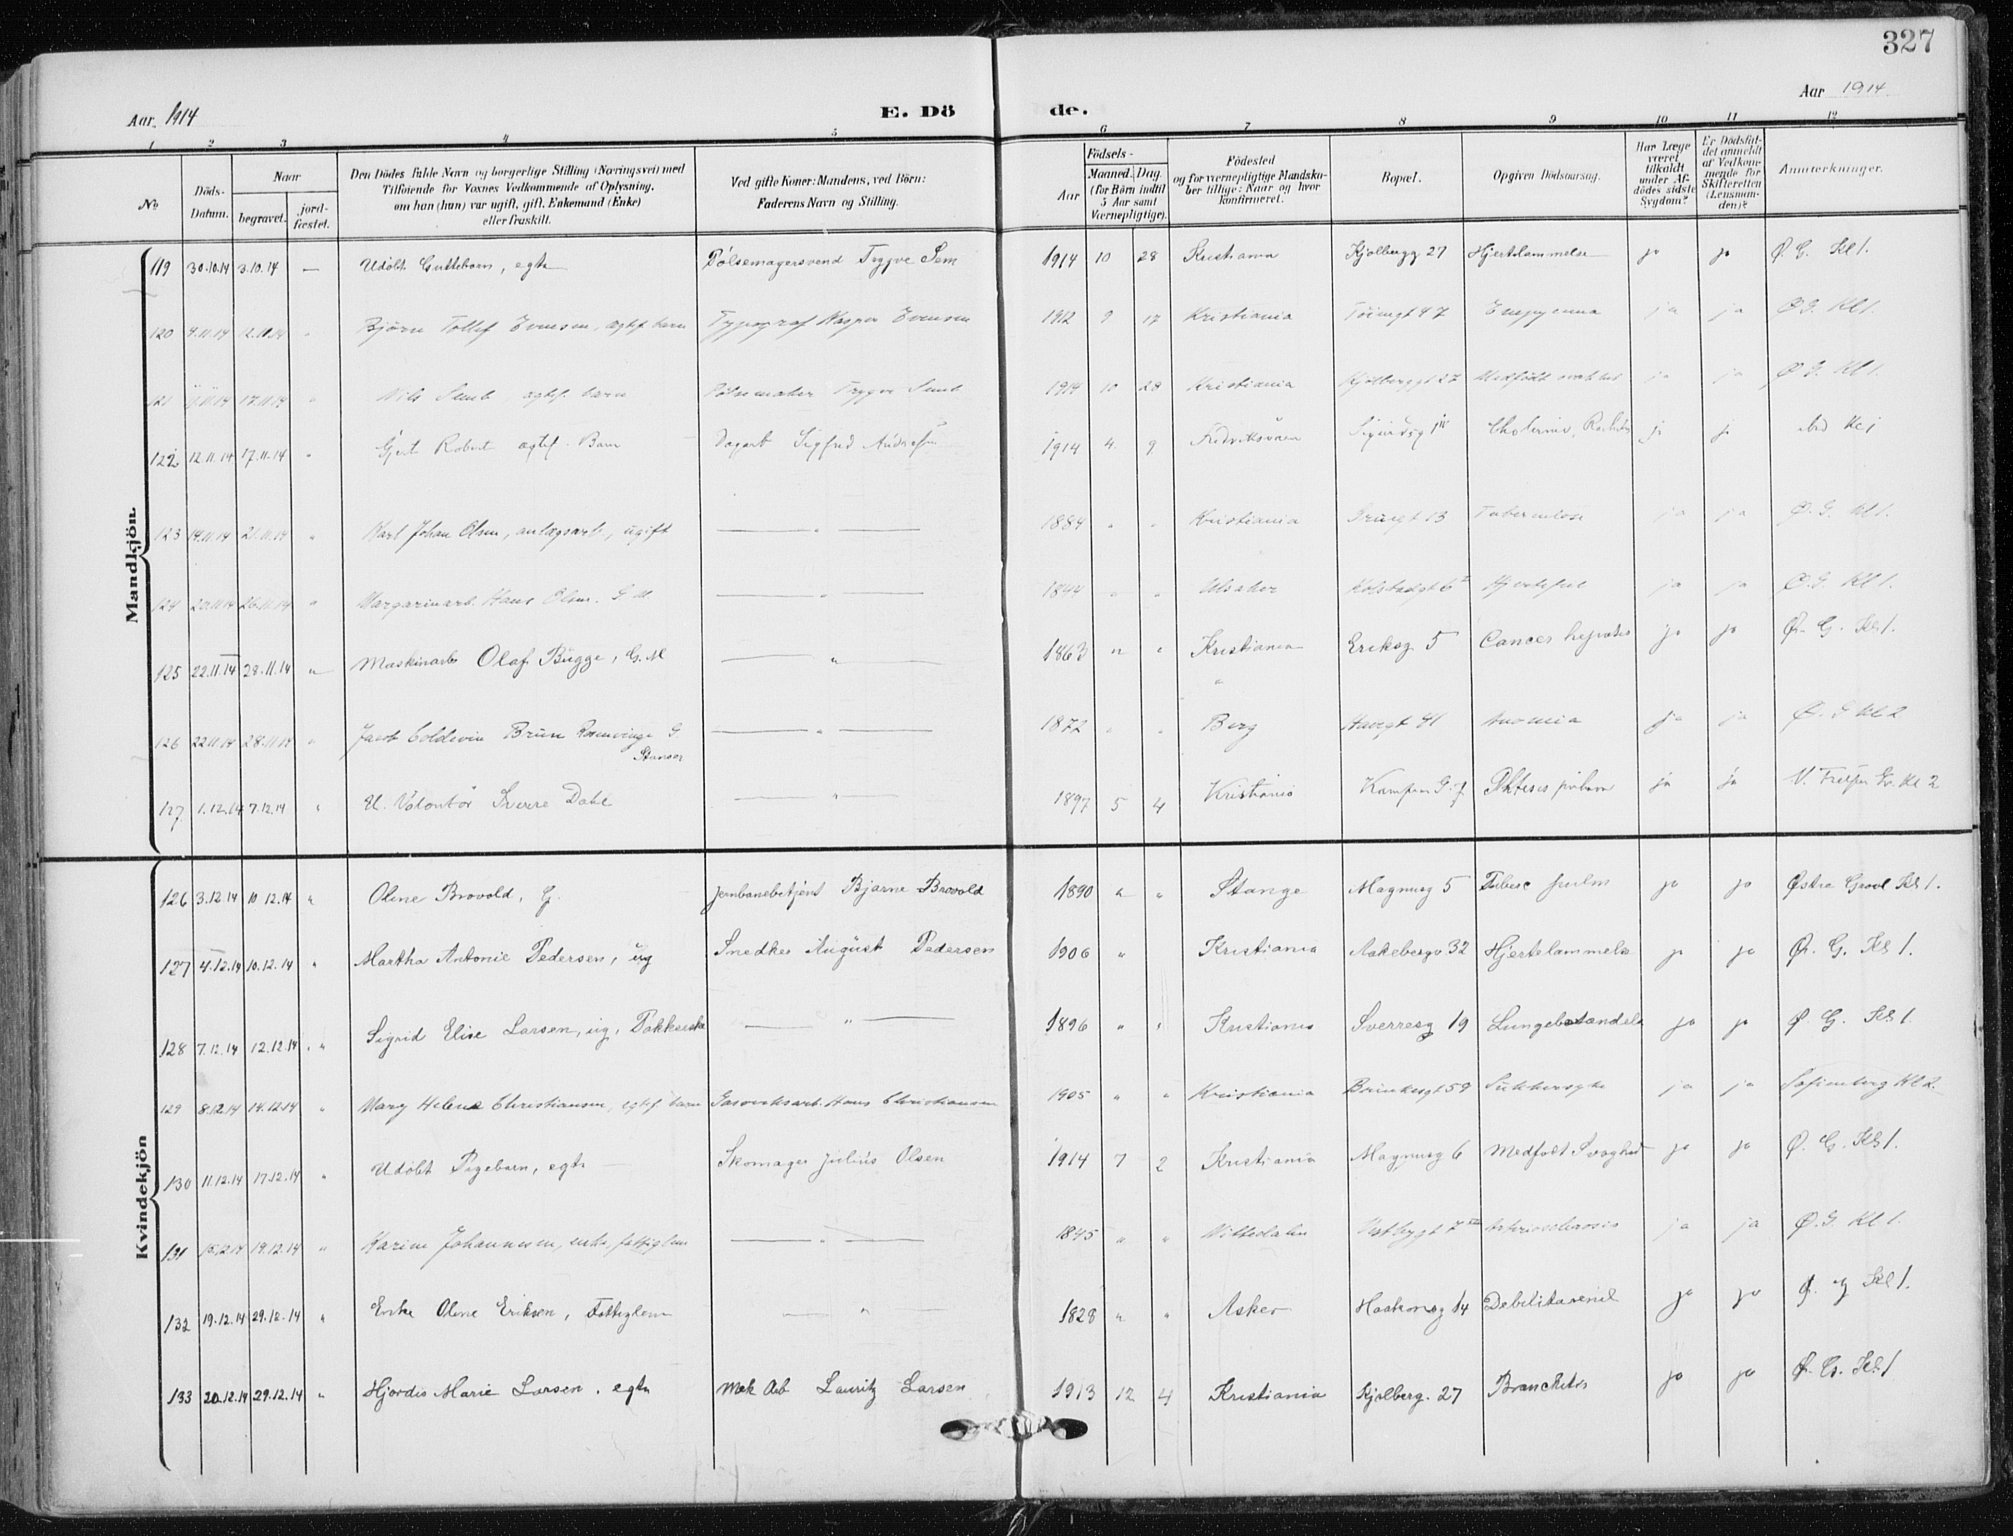 327
Aar 1914
E. Dö de.
Aar 1914
1 2 3 4 5 6 7 8 9 10 11 12
No
Döds-Datum.
Naar
begravet.
jord-fæstet.
Den Dödes fulde Navn og borgerlige Stilling (Næringsvei) med
Tilföiende for Voxnes Vedkommende af Oplysning,
om han (hun) var ugift, gift, Enkemand (Enke)
eller fraskilt.
Ved gifte Koner: Mandens, ved Börn:
Faderens Navn og Stilling.
Födsels-
Aar
Maaned. Dag.
(for Börn indtil
5 Aar samt
Værnepligtige).
Födested
og for værnepligtige Mandska-
ber tillige: Naar og hvor
konfirmeret.
Bopæl.
Opgiven Dödsaarsag.
Har Læge
været
tilkaldt
under Af-
dödes sidste
Sygdom?
Er Dödsfal-
det anmeldt
af Vedkom-
mende for
Skifteretten
(Lensman-
den)?
Anmærkninger.
Mandkjön.
119 30.10.14 3.10.14 — Udöbt Guttebarn, egte Pölsemagersvend Trygve Sem 1914 10 28 Kristiania Kjölbergg 27 Hjertelammelse ja ja Ø. G. Kl 1.
120 9.11.14 12.11.14 " Björn Tollef Evensen, egtef. barn Typograf Kasper Evensen 1912 9 17 Kristiania Töiengt 47 Empyema ja ja Ø. G. Kl 1.
121 17.11.14 " Nils Semb, egtef. barn Pölsemaker Trygve Semb 1914 10 28 Kristiania Kjölberggt 27 Medfödt svakhet ja ja Ø. G. Kl 1.
122 12.11.14 17.11.14 " Gert Robert egtef. Barn Dagarb Sigfred Andersen 1914 4. 9 Fredriksværn Sigurdsg Cholerine, ja ja Kl 1
123 14.11.14 21.11.14 " Karl Johan Olsen, anlægsarb., ugift — " — 1884 " " Kristiania Urtegt 13 Tuberculose ja ja Ø. G. Kl 1.
124 20.11.14 26.11.14 " Margarinarb. Hans Olsen. G M — " — 1844 " " Ulsaker Kolstadgt 6 Hjertefeil ja ja Ø. G Kl 1.
125 22.11.14 28.11.14 " Maskinarb Olaf Bugge, G. M — " — 1863 " " Kristiania Eriksg. 5 Cancer hepatis ja ja Ø. G. Kl 1.
126 22.11.14 28.11.14 " Jacob Coldevin Brun Rosenvinge G Stanser — " — 1872 " " Berg 41 ja ja Ø. G Kl 2
127 1.12.14 7.12.14 " U. Volontör Sverre Dahl — " — 1897 5 4 Kristiania Kampen G. Phtisis pulm ja ja V. Frelsers Gr. Kl 2
Kvindekjön
126 3.12.14 10.12.14 " Oline Brovold, G. Jernbanebetjent Bjarne Brovold 1890 " " Stange Magnusg 5 Tuberc pulm ja ja Østre Gravl Kl 1.
127 4.12.14 10.12.14 " Martha Antonie Pedersen, ug Snedker August Pedersen 1906 " Kristiania Aakebergv 32 Hjertelammelse ja ja Ø. G. Kl 1.
128 7.12.14 12.12.14 " Sigrid Elise Larsen, ug, Pakkerske — " — 1896 " " Kristiania Sverresg 19 Lungebetændelse ja ja Ø. G. Kl 1.
129 8.12.14 14.12.14 " Mary Helene Christiansen, egtef. barn Gasverksarb. Hans Christiansen 1905 " " Kristiania Brinkengt 59 Sukkersyke ja ja Sofienberg Kl 2.
130 11.12.14 17.12.14 " Udöbt Pigebarn, egte Skomager Julius Olsen 1914 7 2 Kristiania Magnusg 6 Medfödt Svaghed ja ja Ø. G. Kl 1.
131 15.12.14 19.12.14 " Karine Johannesen, enke, fattiglem — " — 1845 " " Nittedalen Vestbygt 7 Arteriosclerosis ja ja Ø. G. Kl 1.
132 19.12.14 29.12.14 " Enke Oline Eriksen, Fattiglem — " — 1828 " " Asker Haakonsg 14 Debilitas senil ja ja Ø. G Kl 1.
133 20.12.14 29.12.14 " Hjördis Marie Larsen, egte Mek Arb Lauritz Larsen 1913 12 4 Kristiania Kjölberg. 27 Bronchitis ja ja Ø. G. Kl. 1